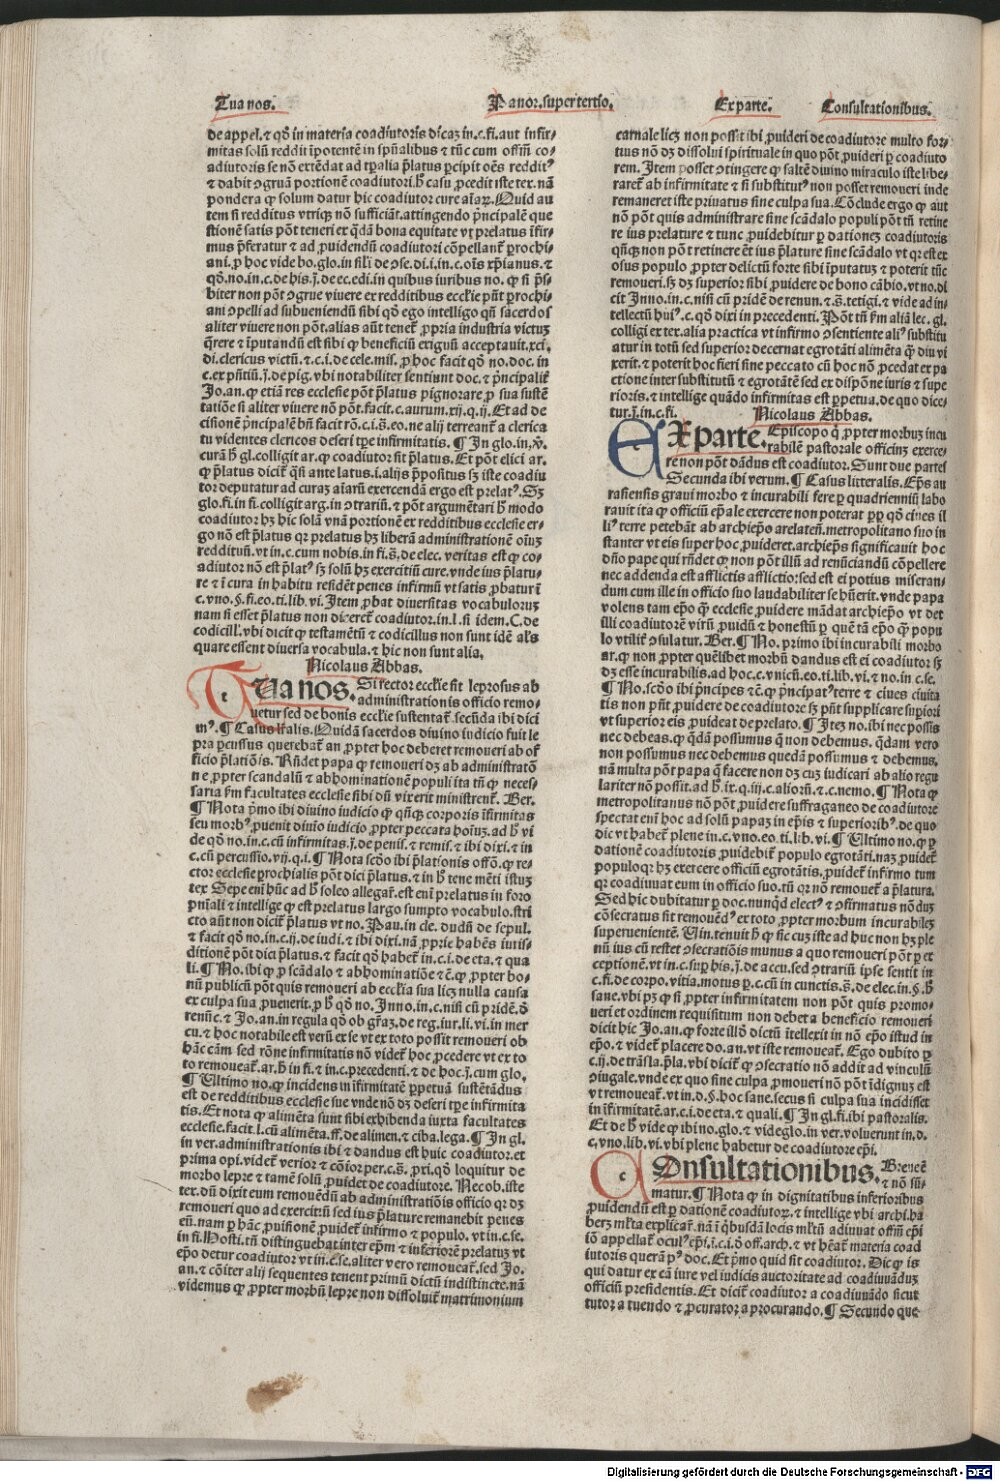 Tua nos.
Panor. super tertio.
Ex parte.
Consultationibus.
de appel. ⁊ qḋ in materia coadiutoris dicaȝ in .c. fi. aut infir⸗
mitas solū reddit īpotentē in spūalibus ⁊ tūc cum offm̄ co⸗
adiutoris se nō extēdat ad tꝑalia p̄latus ꝑcipit oēs reddit⁹
⁊ dabit ꝯgruā portionē coadiutori. h̄ casu ꝓcedit iste tex. nā
pondera ꝙ solum datur hic coadiutor cure aīaꝝ. Quid au
tem si redditus vtriqȝ nō sufficiāt. attingendo p̄ncipalē que
stionē satis pōt teneri ex q̄dā bona equitate vt prelatus īfir⸗
mus p̄feratur ⁊ ad ꝓuidendū coadiutori cōpellant᷑ ꝑrochi⸗
ani. ꝓ hoc vide bo. glo. in sil'i de ꝯse. di. i. in .c. oīs xp̄ianus. ⁊
qḋ. no. in .c. de his. j. de ec. edi. in quibus iuribus no. ꝙ si p̄s⸗
biter non pōt ꝯgrue viuere ex redditibus ecclīe pn̄t ꝑrochi⸗
ani ꝯpelli ad subueniendū sibi qḋ ego intelligo qn̄ sacerdos
aliter viuere non pōt. alias aūt tenet᷑ ꝓpria industria victuȝ
q̄rere ⁊ īputandū est sibi ꝙ beneficiū exiguū acceptauit. xcj.
di. clericus victū. ⁊ .c. i. de cele. mis. ꝓ hoc facit qḋ no. doc. in
c. ex pn̄tiū. j. de pig. vbi notabiliter sentiunt doc. ⁊ p̄ncipalit᷑
Jo. an. ꝙ etiā res ecclesie pōt p̄latus pignorare ꝓ sua sustē
tatiōe si aliter viuere nō pōt. facit .c. aurum. xij. q. ij. Et ad de
cisionē p̄ncipalē bn̄ facit rō .c. i. s̄. eo. ne alij terreant᷑ a clerica
tu videntes clericos deseri tp̄e infirmitatis. ¶ In glo. in. v̄.
curā h̄ gl. colligit ar. ꝙ coadiutor sit p̄latus. Et pōt elici ar.
ꝙ p̄latus dicit᷑ q̄si ante latus. i. alijs p̄positus sȝ iste coadiu
tor deputatur ad curaȝ aīarū exercendā ergo est prelat⁹. Sȝ
glo. fi. in fi. colligit arg. in ꝯtrariū. ⁊ pōt argumētari h̄ modo
coadiutor hȝ hic solā vnā portionē ex redditibus ecclesie er⸗
go nō est p̄latus qr prelatus hȝ liberā administrationē oīuȝ
reddituū. vt in .c. cum nobis. in fi. s̄. de elec. veritas est ꝙ co⸗
adiutor nō est p̄lat⁹ sȝ solū hȝ exercitiū cure. vnde ius p̄latu⸗
re ⁊ ī cura in habitu resident penes infirmū vt satis ꝓbatur ī
c. vno. §. fi. eo. ti. lib. vi. Item ꝓbat diuersitas vocabuloruȝ
nam si esset p̄latus non diceret᷑ coadiutor. in .l. si idem. C. de
codicill'. vbi dicit ꝙ testamētū ⁊ codicillus non sunt idē al's
quare essent diuersa vocabula. ⁊ hic non sunt alia.
Nicolaus Abbas.
TUa nos. Si rector ecclīe sit leprosus ab
administrationis officio remo⸗
uetur sed de bonis ecclīe sustentat᷑. secūda ibi dici
m⁹. ¶ Casus ītalis. Quidā sacerdos diuino iudicio fuit le
pra ꝑcussus querebat᷑ an ꝓpter hoc deberet remoueri ab of
ficio p̄latiōis. Rn̄det papa ꝙ remoueri dȝ ab administratō
ne ꝓpter scandalū ⁊ abhominationē populi ita tn̄ ꝙ neces⸗
saria fm̄ facultates ecclesie sibi dū vixerit ministrent᷑. Ber.
¶ Nota p̄mo ibi diuino iudicio ꝙ qn̄qȝ corporis īfirmitas
seu morb⁹ ꝓuenit diuīo iudicio ꝓpter peccata hoīuȝ. ad h̄ vi
de qḋ no. in .c. cū infirmitas. j. de peni. ⁊ remis. ⁊ ibi dixi. ⁊ in
c. cū percussio. vij. q. i. ¶ Nota scḋo ibi p̄lationis offō. ꝙ re⸗
ctor ecclesie ꝑrochialis pōt dici p̄latus. ⁊ in h̄ tene mēti istuȝ
tex Sepe em̄ hūc ad h̄ soleo allegar᷑. est em̄ prelatus in foro
pn̄iali ⁊ intellige ꝙ est prelatus largo sumpto vocabulo. stri
cto aūt non dicit᷑ p̄latus vt no. Pau. in cle. dudū de sepul.
⁊ facit qḋ no. in .c. ij. de iudi. ⁊ ibi dixi. nā ꝓprie habēs iuris⸗
ditionē pōt dici p̄latus. ⁊ facit qḋ habet᷑ in .c. i. de eta. ⁊ qua
li. ¶ No. ibi ꝙ ꝓ scādalo ⁊ abhominatiōe ⁊ c̄. ꝙ ꝓpter bo⸗
nū publicū pōt quis remoueri ab ecclīa sua licȝ nulla causa
ex culpa sua ꝓuenerit. ꝓ h̄ qḋ no. Inno. in .c. nisi cū pridē. ḋ
renūc. ⁊ Jo. an. in regula qḋ ob gr̄aȝ. de reg. iur. li. vi. in mer
cu. ⁊ hoc notabile est verū ex se vt ex toto possit remoueri ob
hāc cām sed rōne infirmitatis nō videt᷑ hoc ꝓcedere vt ex to
to remoueat᷑. ar. h̄ in fi. ⁊ in .c. precedenti. ⁊ de hoc. j. cum glo.
¶ Ultimo no. ꝙ incidens in īfirmitatē ꝑpetuā sustētādus
est de redditibus ecclesie sue vnde nō dȝ deseri tp̄e infirmita
tis. Et nota ꝙ alimēta sunt sibi exhibenda iuxta facultates
ecclesie. facit .l. cū alimēta. ff. de alimen. ⁊ ciba. lega. ¶ In gl.
in ver. administrationis ibi ⁊ dandus est huic coadiutor. et
prima opi. videt᷑ verior ⁊ cōior per .c. s̄. ꝓxi. qḋ loquitur de
morbo lepre ⁊ tamē solū ꝓuidet de coadiutore. Nec ob. iste
tex. dū dixit eum remouēdū ab administratiōis officio qr dȝ
remoueri quo ad exercitiū sed ius p̄lature remanebit penes
eū. nam ꝑ hāc ꝓuisionē ꝓuidet᷑ infirmo ⁊ populo. vt in .c. se.
in fi. Hosti. tn̄ distinguebat inter ep̄m ⁊ inferiorē prelatuȝ vt
ep̄o detur coadiutor vt in .c. se. aliter vero remoueat᷑. sed Jo.
an. ⁊ cōiter alij sequentes tenent primū dictū indistincte. nā
videmus ꝙ ꝓpter morbū lepre non dissoluit᷑ matrimonium
carnale licȝ non possit ibi ꝓuideri de coadiutore multo for⸗
tius nō dȝ dissolui spirituale in quo pōt ꝓuideri ꝑ coadiuto
rem. Item posset ꝯtingere ꝙ saltē diuino miraculo iste libe⸗
raret᷑ ab infirmitate ⁊ si substitut⁹ non posset remoueri inde
remaneret iste priuatus sine culpa sua. Cōclude ergo ꝙ aut
nō pōt quis administrare sine scādalo populi pōt tn̄ retine
re ius prelature ⁊ tunc ꝓuidebitur ꝑ dationeȝ coadiutoris
qn̄qȝ non pōt retinere ēt ius p̄lature sine scādalo vt qr est ex
osus populo ꝓpter delictū forte sibi īputatuȝ ⁊ poterit tūc
remoueri. sȝ dȝ superior sibi ꝓuidere de bono cābio. vt no. di
cit Inno. in .c. nisi cū pridē de renun. ⁊ .s̄. tetigi. ⁊ vide ad in⸗
tellectū hui⁹. c. qḋ dixi in precedenti. Pōt tn̄ fm̄ aliā lec. gl.
colligi ex tex. alia practica vt infirmo ꝯsentiente ali⁹ substitu
atur in totū sed superior decernat egrotāti alimēta q̄ diu vi
xerit. ⁊ poterit hoc fieri sine peccato cū hoc nō ꝓcedat ex pa
ctione inter substitutū ⁊ egrotātē sed ex dispōne iuris ⁊ supe
rioris. ⁊ intellige quādo infirmitas est ꝑpetua. de quo dice⸗
tur. j. in .c. fi.
Nicolaus Abbas.
EX parte. Episcopo q̄ ꝓpter morbuȝ incu
rabilē pastorale officiuȝ exerce⸗
re non pōt dādus est coadiutor. Sunt due partes
Secunda ibi verum. ¶ Casus litteralis. Ep̄s au
rasiensis graui morbo ⁊ incurabili fere ꝑ quadrienniū labo
rauit ita ꝙ officiū ep̄ale exercere non poterat ꝑp qḋ ciues il
li⁹ terre petebāt ab archiep̄o arelateñ. metropolitano suo in
stanter vt eis super hoc ꝓuideret. archiep̄s significauit hoc
dn̄o pape qui rn̄det ꝙ non pōt illū ad renūciandū cōpellere
nec addenda est afflictis afflictio: sed est ei potius miseran⸗
dum cum ille in officio suo laudabiliter se hūerit. vnde papa
volens tam ep̄o q̄ ecclesie ꝓuidere mādat archiep̄o vt det
illi coadiutorē virū ꝓuidū ⁊ honestū ꝑ quē tā ep̄o q̄ popu
lo vtilit᷑ ꝯsulatur. Ber. ¶ No. primo ibi incurabili morbo
ar. ꝙ non ꝓpter quēlibet morbū dandus est ei coadiutor sȝ
dȝ esse incurabilis. ad hoc .c. vnicū. eo. ti. lib. vi. ⁊ no. in .c. se.
¶ No. scḋo ibi p̄ncipes ⁊ c̄. ꝙ p̄ncipat⁹ terre ⁊ ciues ciuita
tis non pn̄t ꝓuidere de coadiutore sȝ pn̄t supplicare suꝑiori
vt superior eis ꝓuideat de prelato. ¶ Iteȝ no. ibi nec possis
nec debeas. ꝙ q̄dā possumus q̄ non debemus. q̄dam vero
non possumus nec debemus quedā possumus ⁊ debemus.
nā multa pōt papa q̄ facere non dȝ cuȝ iudicari ab alio regu
lariter nō possit. ad h̄. ix. q. iij. c. aliorū. ⁊ .c. nemo. ¶ Nota ꝙ
metropolitanus nō pōt ꝓuidere suffraganeo de coadiutore
spectat em̄ hoc ad solū papaȝ in ep̄is ⁊ superiorib⁹. de quo
dic vt habet᷑ plene in .c. vno. eo. ti. lib. vi. ¶ Ultimo no. ꝙ ꝑ
dationē coadiutoris ꝓuidebit᷑ populo egrotāti. naȝ ꝓuidet᷑
populo qr hȝ exercere officiū egrotātis. ꝓuidet᷑ infirmo tum
qr coadiuuat eum in officio suo. tū qr nō remouet᷑ a p̄latura.
Sed hic dubitatur ꝑ doc. nunqd elect⁹ ⁊ ꝯfirmatus nōduȝ
cōsecratus sit remouēd⁹ ex toto ꝓpter morbum incurabileȝ
superuenientē. Vin. tenuit h̄ ꝙ sic cuȝ iste ad huc non hȝ ple
nū ius cū restet ꝯsecratiōis munus a quo remoueri pōt ꝑ ex
ceptionē. vt in .c. suꝑ his. j. de accu. sed ꝯtrariū ipse sentit in
c. fi. de corpo. vitia. motus ꝑ .c. cū in cunctis. s̄. de elec. in .§. h̄
sane. vbi pȝ ꝙ si ꝓpter infirmitatem non pōt quis promo⸗
ueri et ordinem requisitum non debet a beneficio remoueri
dicit hic Jo. an. ꝙ forte illḋ dictū ītellexit in nō ep̄o istud in
ep̄o. ⁊ videt᷑ placere do. an. vt iste remoueat᷑. Ego dubito ꝑ
c. ij. de trāsla. p̄la. vbi dicit᷑ ꝙ ꝯsecratio nō addit ad vinculū
ꝯiugale. vnde ex quo sine culpa ꝓmoueri nō pōt īdignuȝ est
vt remoueat᷑. vt in .d. §. hoc sane. secus si culpa sua incidisset
in īfirmitatē. ar. c. i. de eta. ⁊ quali. ¶ In gl. fi. ibi pastoralis.
Et de h̄ vide ꝙ ibi no. glo. ⁊ vide glo. in ver. voluerunt in .d.
c. vno. lib. vi. vbi plene habetur de coadiutore ep̄i.
COnsultationibus. Breue ē
⁊ nō sū⸗
matur. ¶ Nota ꝙ in dignitatibus inferioribus
ꝓuidendū est ꝑ dationē coadiutoꝝ. ⁊ intellige vbi archi. ha
berȝ ml'ta explicar᷑. nā ī q̄busdā locis ml'tū adiuuat offm̄ ep̄i
iō appellat᷑ ocul⁹ ep̄i. i. c. i. ḋ off. arch. ⁊ vt hēat᷑ materia coad
iutoris querā p⁹ doc. Et p̄mo quid sit coadiutor. Dic ꝙ is
qui datur ex cā iure vel iudicis auctoritate ad coadiuuāduȝ
officiū presidentis. Et dicit᷑ coadiutor a coadiuuādo sicut
tutor a tuendo ⁊ ꝓcurator a procurando. ¶ Secundo que
Digitalisierung gefördert durch die Deutsche Forschungsgemeinschaft - DFG